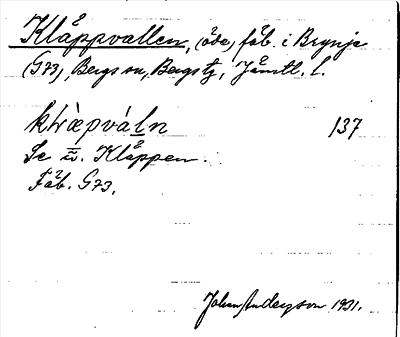 Klåppvallen, (öde) fäb. i Brynje
(G73), Bergs sn, Bergs tg, Jämtl. l.
kɬæ̀pvál̲n 137
Se w. Klåppen.
Fäb. G73.
John Anderzson 1931.